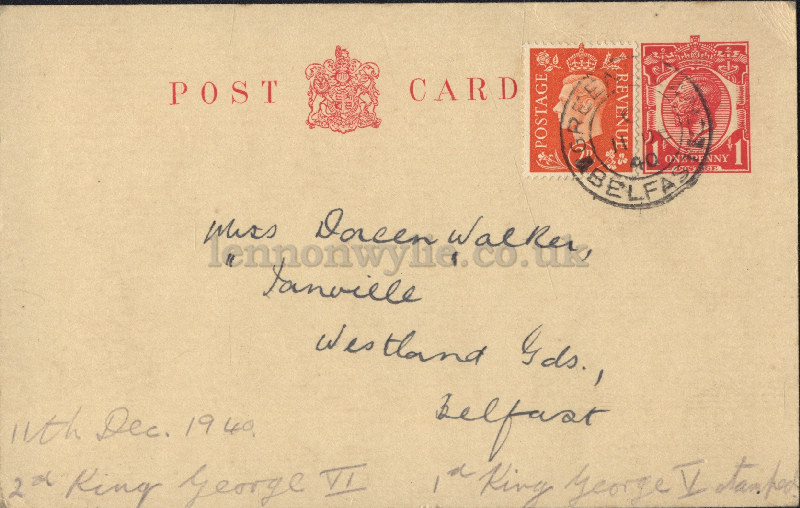 POST CARD
POSTAGE REVENUE
ONE PENNY
1 1
BELFAST
40
Miss Doreen Walker,
"Ianville"
Westland Gds.,
Belfast
lennonwylie.co.uk
11th Dec. 1940.
2d King George VI 1d King George V stamped